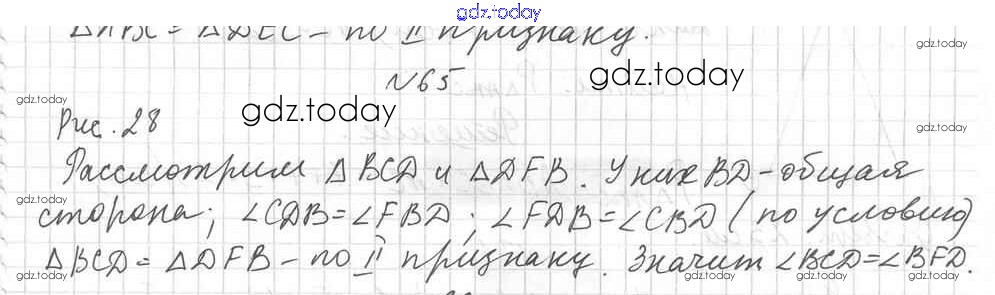 gdz.today
△ABC = △DEC - по II признаку.
№65
gdz.today
gdz.today
gdz.today
gdz.today
gdz.today
Рис. 28
gdz.today
Рассмотрим △BCD и △DFB. У них BD - общая
gdz.today
gdz.today
сторона; ∠CDB = ∠FBD; ∠FDB = ∠CBD (по условию)
△BCD = △DFB - по II признаку. Значит ∠BCD = ∠BFD.
gdz.today
gdz.today